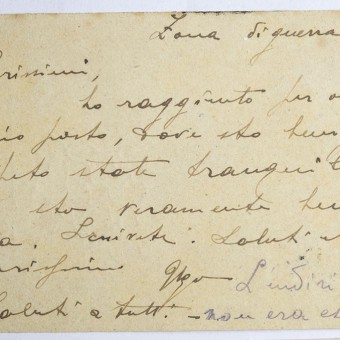 Zona di guerra
rissimi,
ho raggiunto per o
io posto, dove sto bene
peto state tranquil
sto veramente be
a. Scrivete. Saluti e
rissimo
Saluti a tutti. - non era